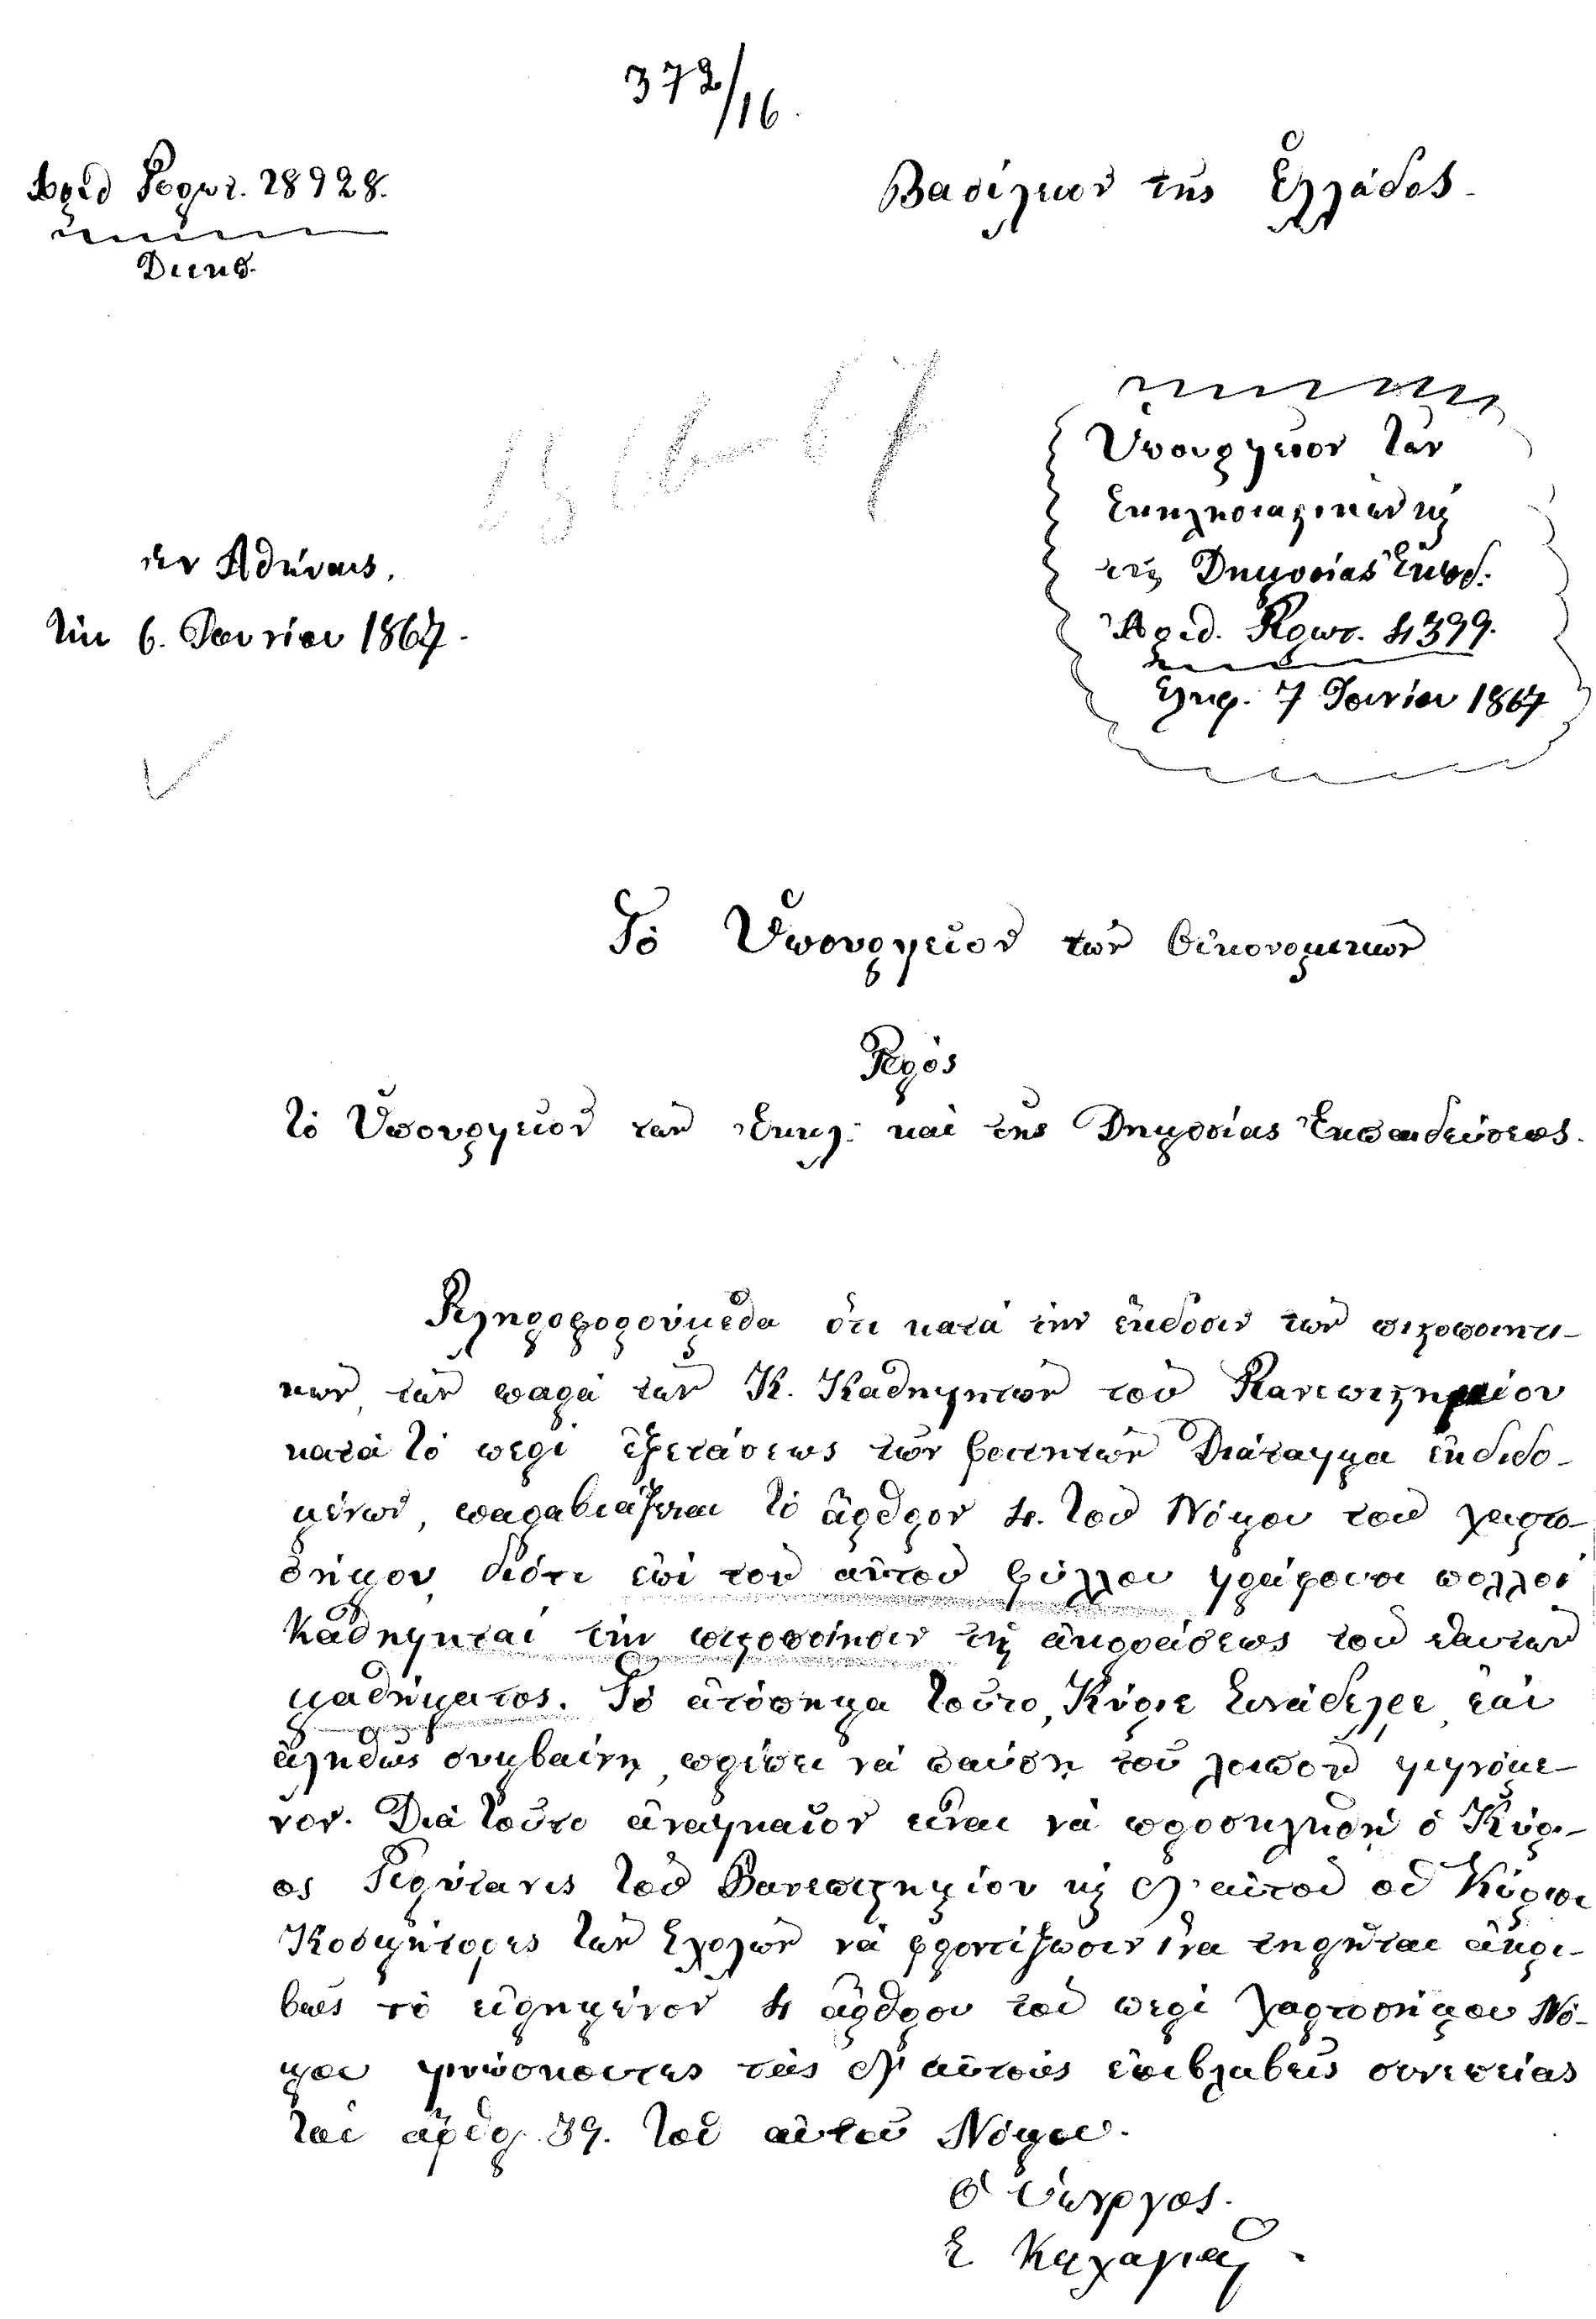 372/16
Ἀριθ Πρωτ. 28928.
Βασίλειον τῆς Ἑλλάδος
Διεκπ.
1866-67
Ὑπουργεῖον τῶν
Ἐκκλησιαστικῶν καὶ
τῆς Δημοσίας Ἐκπδ.
Ἀριθ. Πρωτ. 4399.
Ἐλήφ. 7 Ἰουνίου 1867
Ἐν Ἀθήναις,
τὴν 6. Ἰουνίου 1867.
Τὸ Ὑπουργεῖον τῶν Οἰκονομικῶν
Πρὸς
τὸ Ὑπουργεῖον τῶν Ἐκκλ: καὶ τῆς Δημοσίας Ἐκπαιδεύσεως.
Πληροφορούμεθα ὅτι κατὰ τὴν ἔκδοσιν τῶν πιστοποιητι-
κῶν, τῶν παρὰ τῶν Κ. Καθηγητῶν τοῦ Πανεπιστημίου
κατὰ τὸ περὶ ἐξετάσεως τῶν φοιτητῶν Διάταγμα ἐκδιδο-
μένων, παραβιάζεται τὸ ἄρθρον 4. τοῦ Νόμου τοῦ χαρτο-
σήμου, διότι ἐπὶ τοῦ αὐτοῦ φύλλου γράφουσι πολλοὶ
καθηγηταὶ τὴν πιστοποίησιν τῆς ἀκροάσεως τοῦ ἑαυτῶν
μαθήματος. Τὸ ἀτόπημα τοῦτο, Κύριε Συνάδελφε, ἐὰν
ἀληθῶς συμβαίνῃ, πρέπει νὰ παύσῃ τοῦ λοιποῦ γιγνόμε-
νον. Διὰ τοῦτο ἀναγκαῖον εἶναι νὰ προσκληθῇ ὁ Κύρι-
ος Πρύτανις τοῦ Πανεπιστημίου καὶ δι' αὐτοῦ οἱ Κύριοι
Κοσμήτορες τῶν Σχολῶν νὰ φροντίζωσιν ἵνα τηρῆται ἀκρι-
βῶς τὸ εἰρημένον 4 ἄρθρον τοῦ περὶ χαρτοσήμου Νό-
μου γινώσκοντες τὰς δι' αὐτοὺς ἐπιβλαβεῖς συνεπείας
τοῦ ἄρθρ. 39. τοῦ αὐτοῦ Νόμου.
Ὁ Ὑπουργὸς.
Ε Κεχαγιᾶς